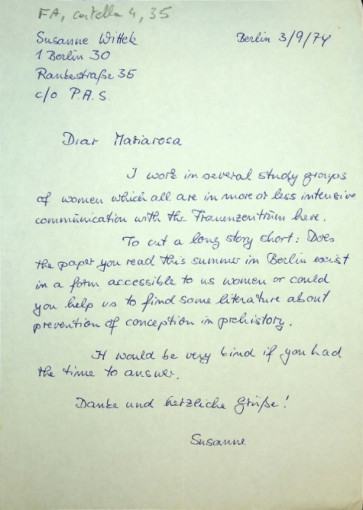 FA, cartella 4, 35
Susanne Wittek
Berlin 3/9/74
1 Berlin 30
Rankestraße 35
c/o P.A.S.
Diar Mariarosa
I work in several study groups
of women which all are in more or less intensive
communication with the Frauenzentrum here.
To cut a long story short: Does
the paper you read this summer in Berlin exist
in a form accessible to us women or could
you help us to find some literature about
prevention of conception in prehistory.
It would be very kind if you had
the time to answer.
Danke und herzliche Grüße!
Susanne